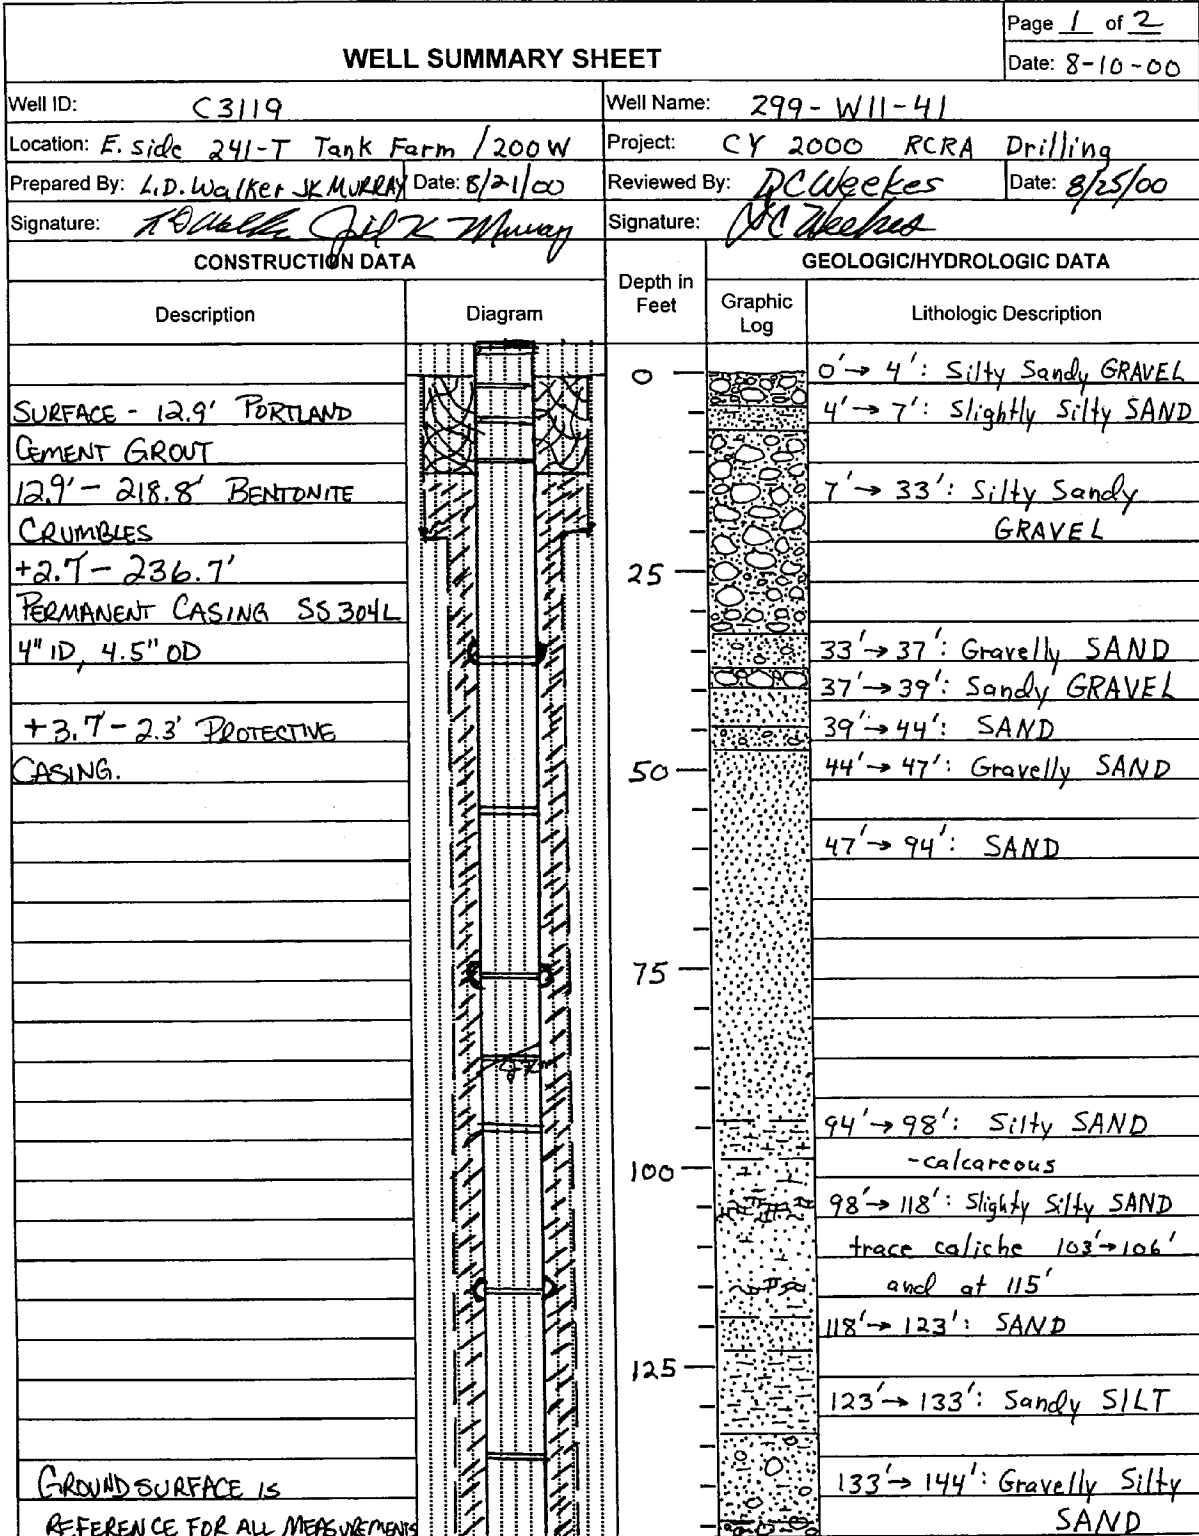 Page 1 of 2
WELL SUMMARY SHEET
Date: 8-10-00
Well ID: C3119
Well Name: 299-W11-41
Location: E. side 241-T Tank Farm /200W
Project: CY 2000 RCRA Drilling
Prepared By: L.D. Walker JK MURRAY Date: 8/21/00
Reviewed By: DC Weekes Date: 8/25/00
Signature: LD Walker Jill K Murray
Signature: DC Weekes
CONSTRUCTION DATA
Depth in Feet
GEOLOGIC/HYDROLOGIC DATA
Description
Diagram
Graphic Log
Lithologic Description
SURFACE - 12.9' PORTLAND
CEMENT GROUT
12.9' - 218.8' BENTONITE
CRUMBLES
+2.7' - 236.7'
PERMANENT CASING SS304L
4" ID, 4.5" OD
+3.7' - 2.3' PROTECTIVE
CASING.
GROUND SURFACE IS
REFERENCE FOR ALL MEASUREMENTS
0
25
50
75
100
125
0' → 4': Silty Sandy GRAVEL
4' → 7': Slightly Silty SAND
7' → 33': Silty Sandy
GRAVEL
33' → 37': Gravelly SAND
37' → 39': Sandy GRAVEL
39' → 44': SAND
44' → 47': Gravelly SAND
47' → 94': SAND
94' → 98': Silty SAND
-calcareous
98' → 118': Slighty Silty SAND
trace caliche 103' → 106'
and at 115'
118' → 123': SAND
123' → 133': Sandy SILT
133' → 144': Gravelly Silty
SAND